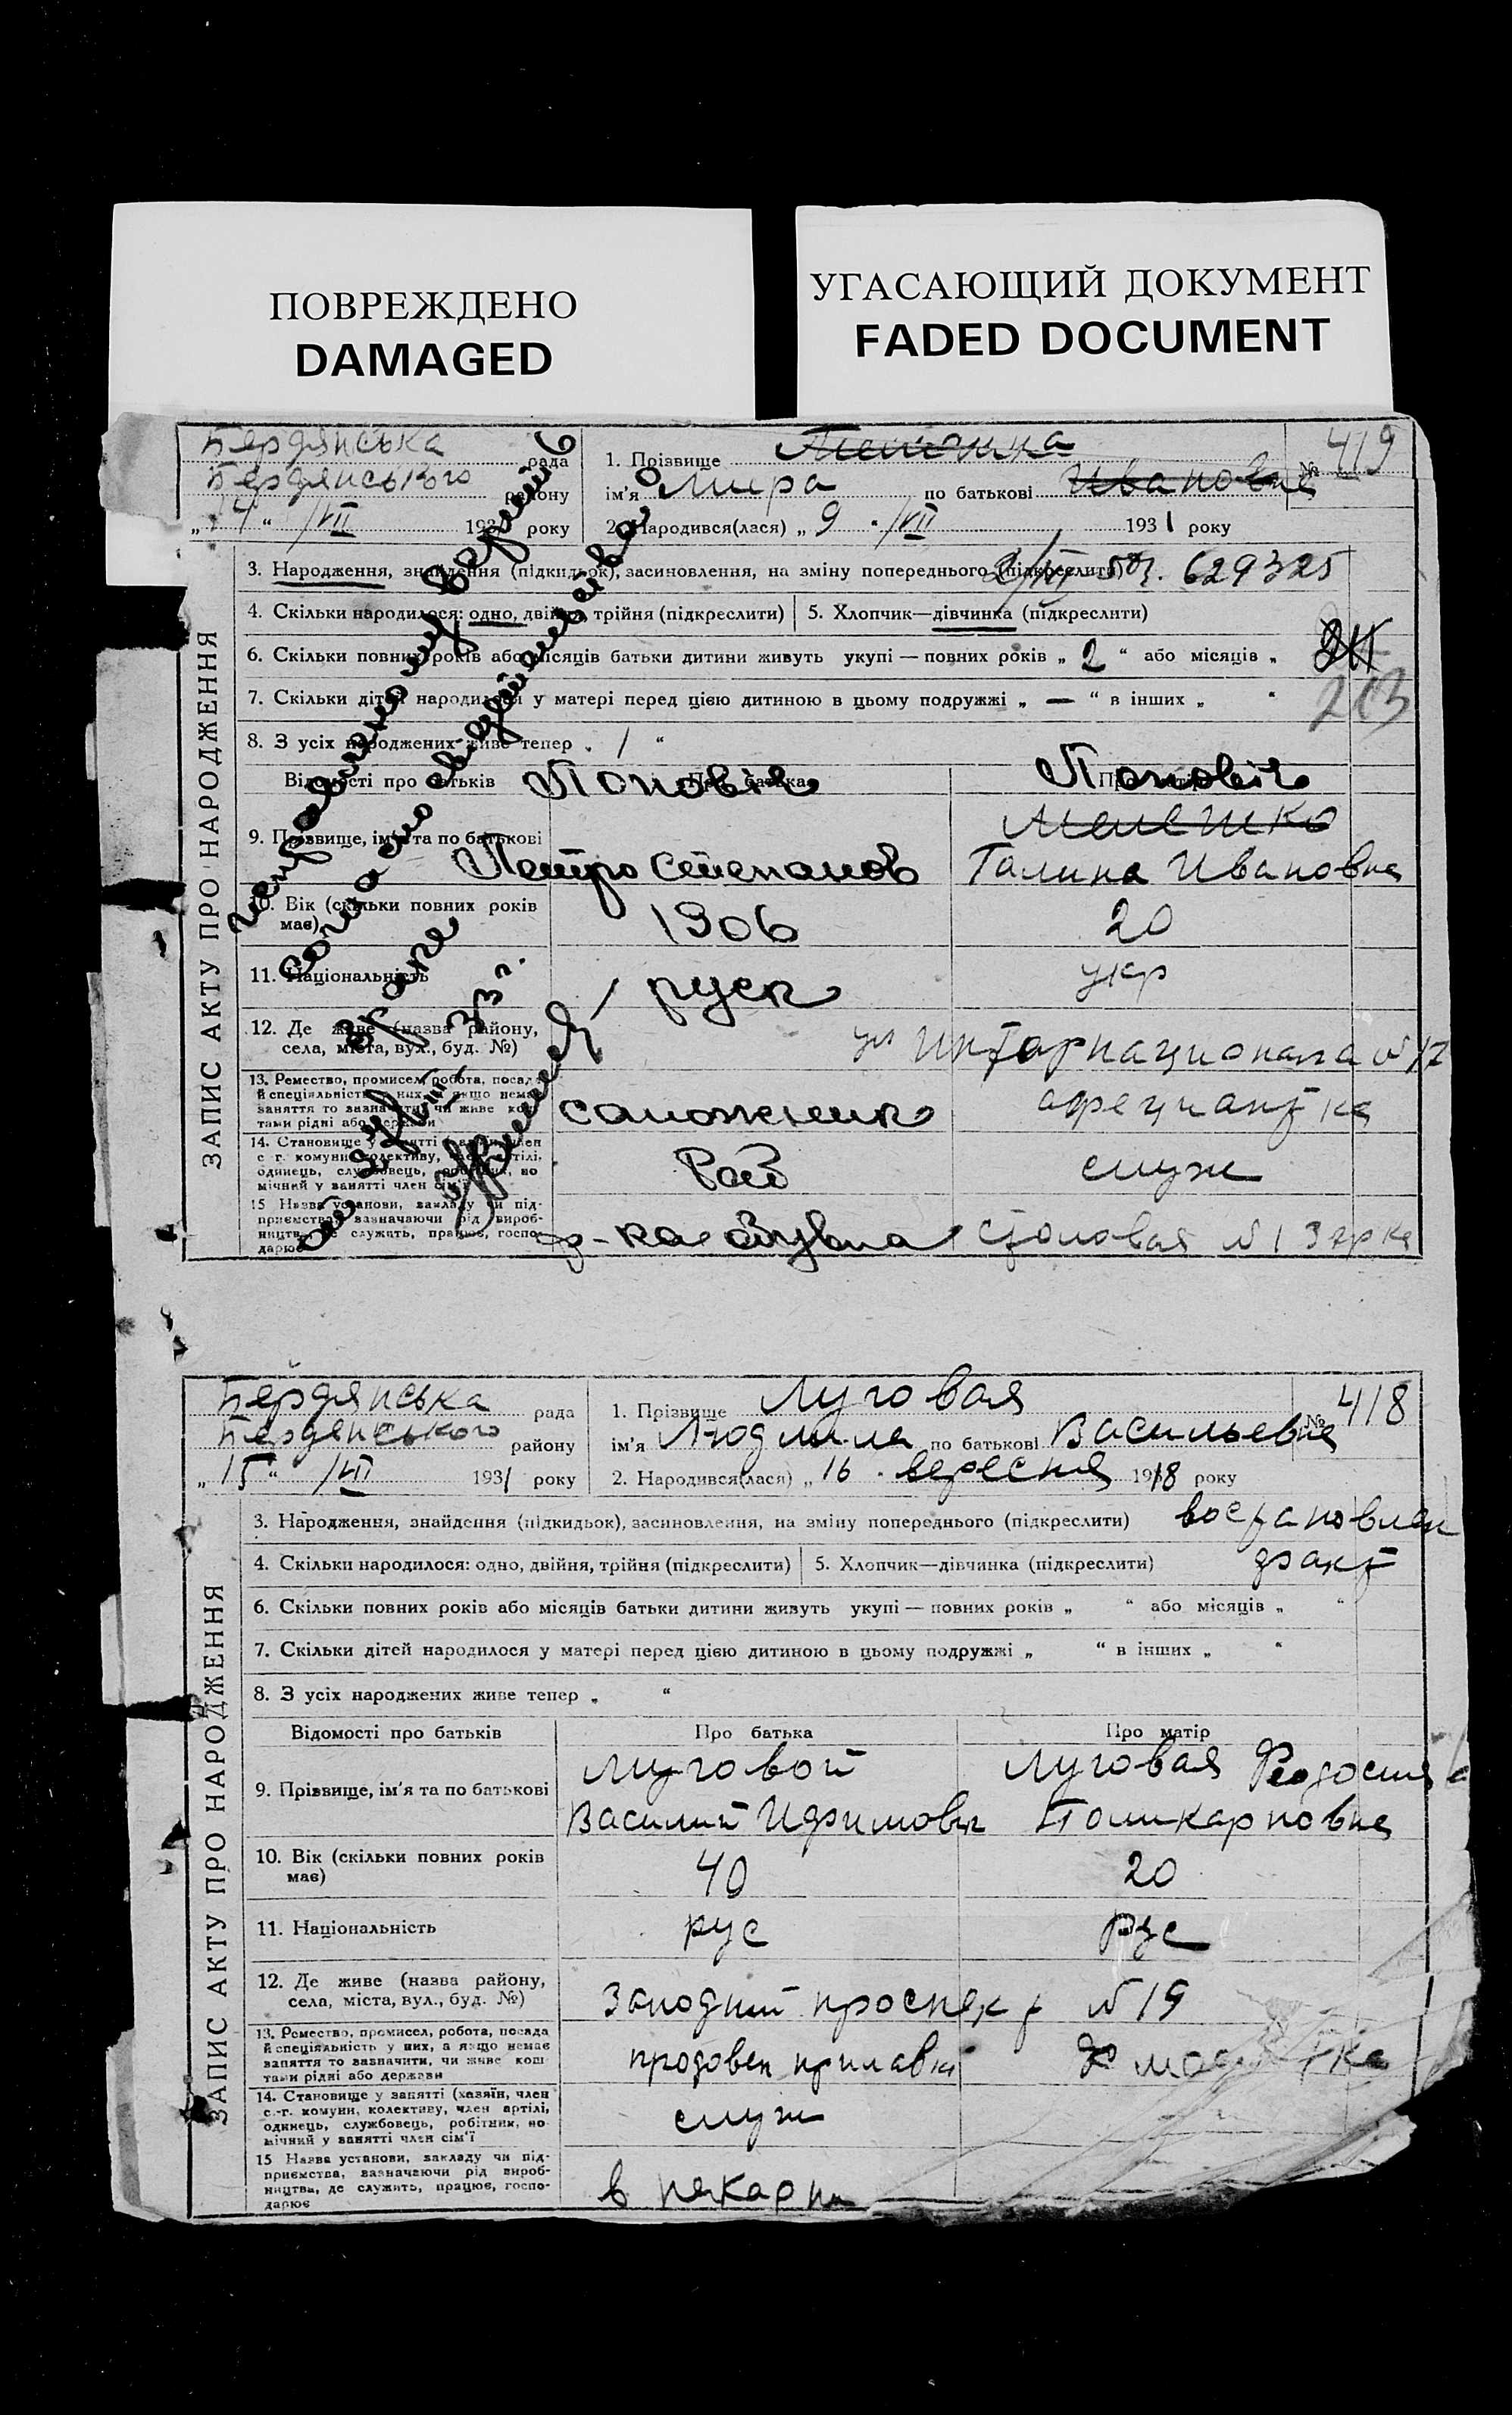 ПОВРЕЖДЕНО
DAMAGED
УГАСАЮЩИЙ ДОКУМЕНТ
FADED DOCUMENT
ЗАПИС АКТУ ПРО НАРОДЖЕННЯ
Бердянська рада
Бердянського району
„14“ /VII 1931 року
№ 419
1. Прізвище
ім'я Мира по батькові Ивановна
2. Народився(лася) „9“ /VII 1931 року
3. Народження, знайдення (підкидьок), засиновлення, на зміну попереднього (підкреслити) 629325
4. Скільки народилося: одно, двійня, трійня (підкреслити) 5. Хлопчик—дівчинка (підкреслити)
6. Скільки повних років або місяців батьки дитини живуть укупі — повних років „2“ або місяців „
7. Скільки дітей народилося у матері перед цією дитиною в цьому подружжі „—“ в інших „ “
213
8. З усіх народжених живе тепер „1“
Відомості про батьків Про батька Про матір
Попович Попович
Мелешко
9. Прізвище, ім'я та по батькові
Петро Степанов Галина Ивановна
10. Вік (скільки повних років має) 1906 20
11. Національність руск укр
12. Де живе (назва району, села, міста, вул., буд. №) ул Интернационала № 17
13. Ремество, промисел, робота, посада й спеціяльність у них, а якщо немає заняття то зазначити, чи живе коштами рідні або держави сапожник официантка
14. Становище у занятті (хазяїн, член с.-г. комуни, колективу, член артілі, одинець, службовець, робітник, помічний у занятті член сім'ї Раб служ
15 Назва установи, закладу чи підприємства, зазначаючи рід виробництва, де служить, працює, господарює ф-ка столовая № 1
ЗАПИС АКТУ ПРО НАРОДЖЕННЯ
Бердянська рада
Бердянського району
„15“ /VII 1931 року
№ 418
1. Прізвище Луговая
ім'я Людмила по батькові Васильевна
2. Народився(лася) „16“ вересня 1918 року
3. Народження, знайдення (підкидьок), засиновлення, на зміну попереднього (підкреслити) востановлен
4. Скільки народилося: одно, двійня, трійня (підкреслити) 5. Хлопчик—дівчинка (підкреслити) факт
6. Скільки повних років або місяців батьки дитини живуть укупі — повних років „ “ або місяців „ “
7. Скільки дітей народилося у матері перед цією дитиною в цьому подружжі „ “ в інших „ “
8. З усіх народжених живе тепер „ “
Відомості про батьків Про батька Про матір
Луговой Луговая Феодосия
9. Прізвище, ім'я та по батькові
Василий Ифимович Поликарповна
10. Вік (скільки повних років має) 40 20
11. Національність рус рус
12. Де живе (назва району, села, міста, вул., буд. №) Западний проспект № 19
13. Ремество, промисел, робота, посада й спеціяльність у них, а якщо немає заняття то зазначити, чи живе коштами рідні або держави продовец
14. Становище у занятті (хазяїн, член с.-г. комуни, колективу, член артілі, одинець, службовець, робітник, помічний у занятті член сім'ї служ
15 Назва установи, закладу чи підприємства, зазначаючи рід виробництва, де служить, працює, господарює в пекарни